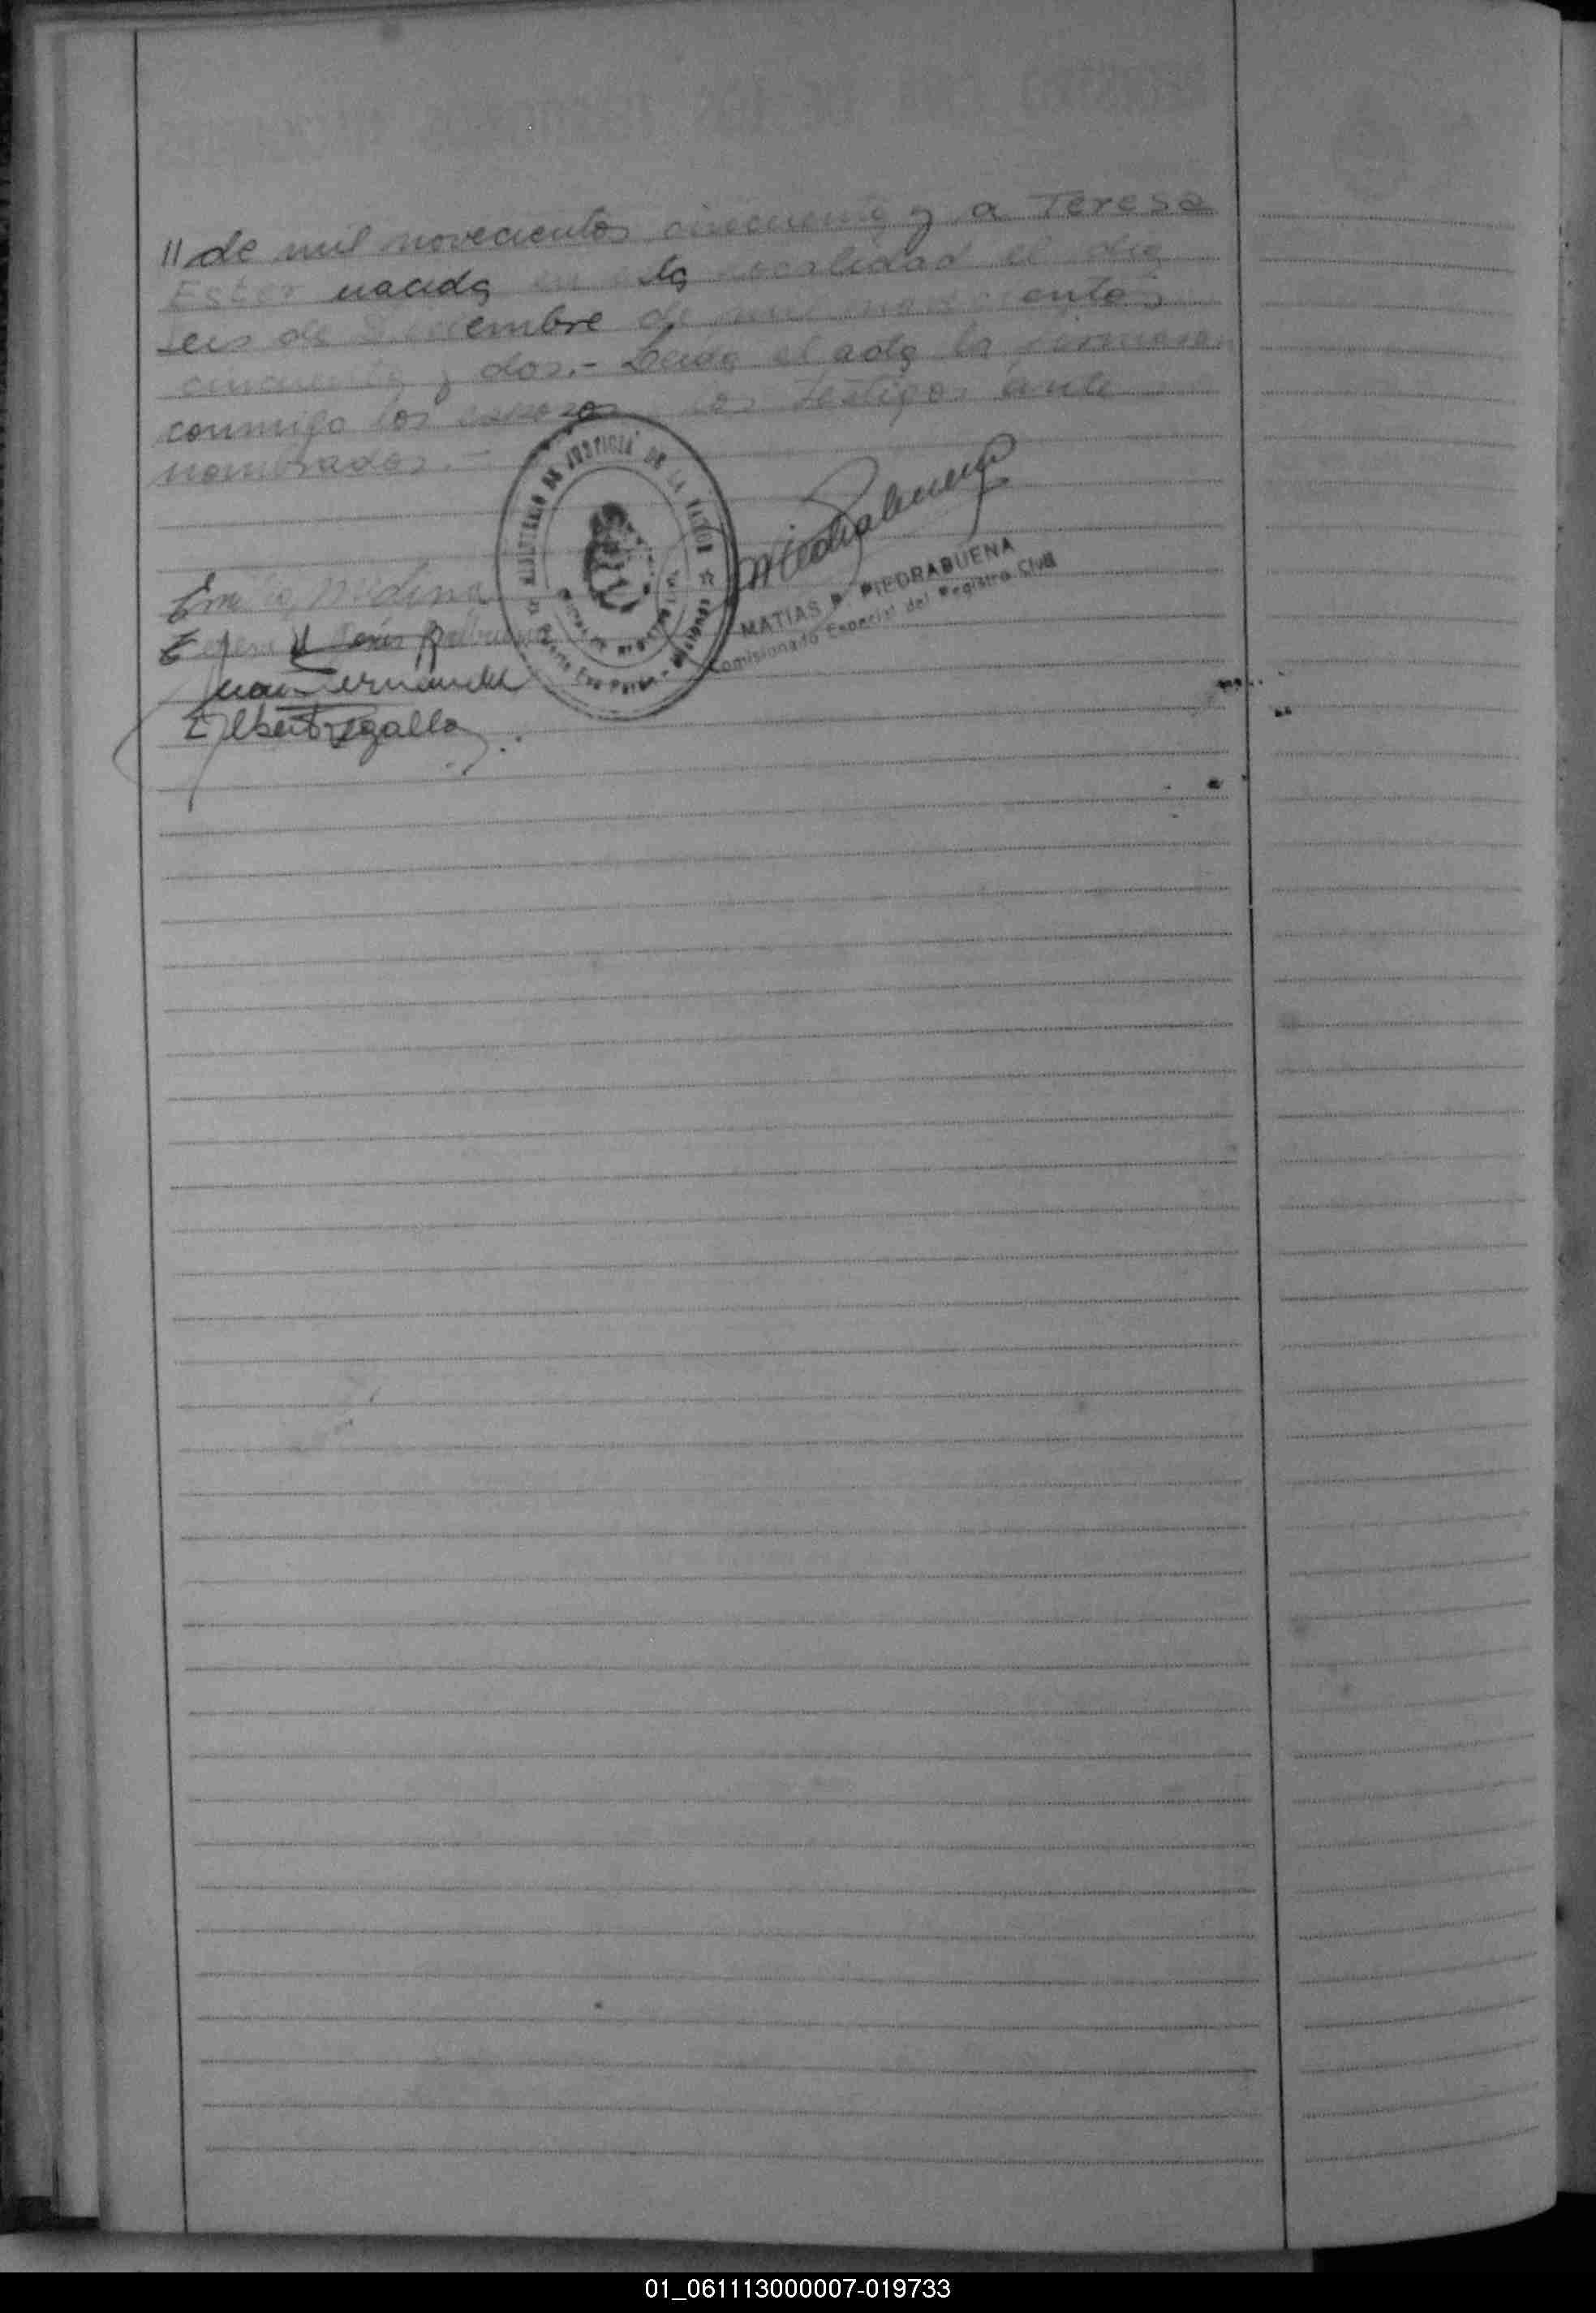 // de mil novecientos cincuenta y a Teresa
Ester nacida en esta localidad el dia
seis de Diciembre de mil novecientos
cincuenta y dos.- Leida el acta la firmaron
conmigo los esposos los testigos ante
nombrados.-
MINISTERIO DE JUSTICIA DE LA NACION
Puerto Eva Peron - Misiones
Medina
Juan Fernandez
MATIAS P. PIEDRABUENA
Comisionado Especial del Registro Civil
01_061113000007-019733